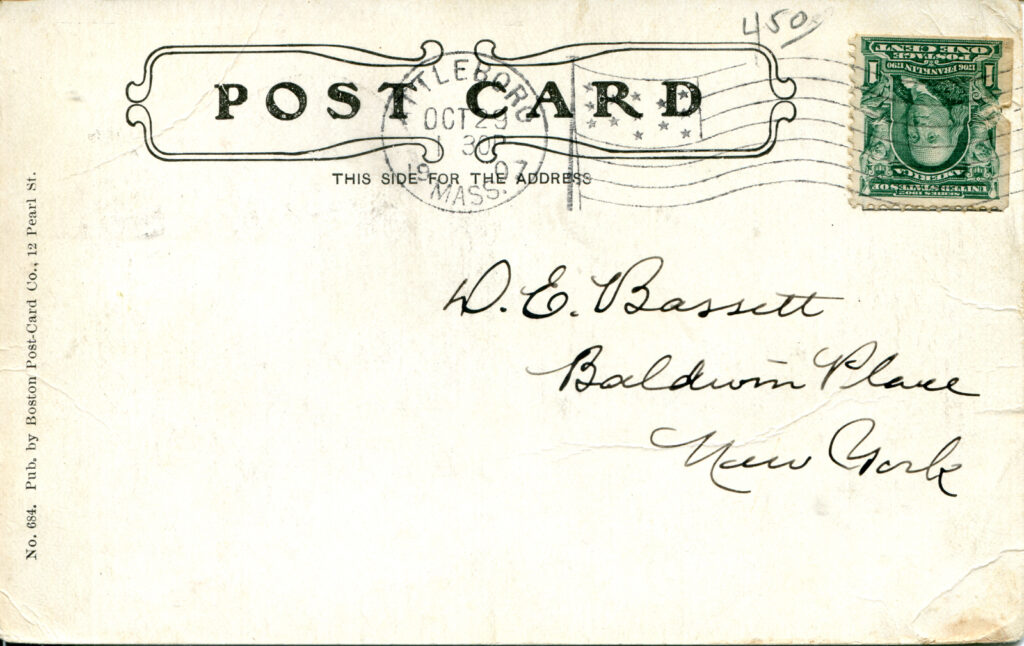 450
POST CARD
ATTLEBORO
OCT 23
1 30P
1907
MASS.
THIS SIDE FOR THE ADDRESS
ONE CENT
POSTAGE
1706 FRANKLIN 1790
1 1
AMERICA
UNITED STATES OF
SERIES 1902
D. E. Bassett
Baldwin Place
New York
No. 684. Pub. by Boston Post-Card Co., 12 Pearl St.